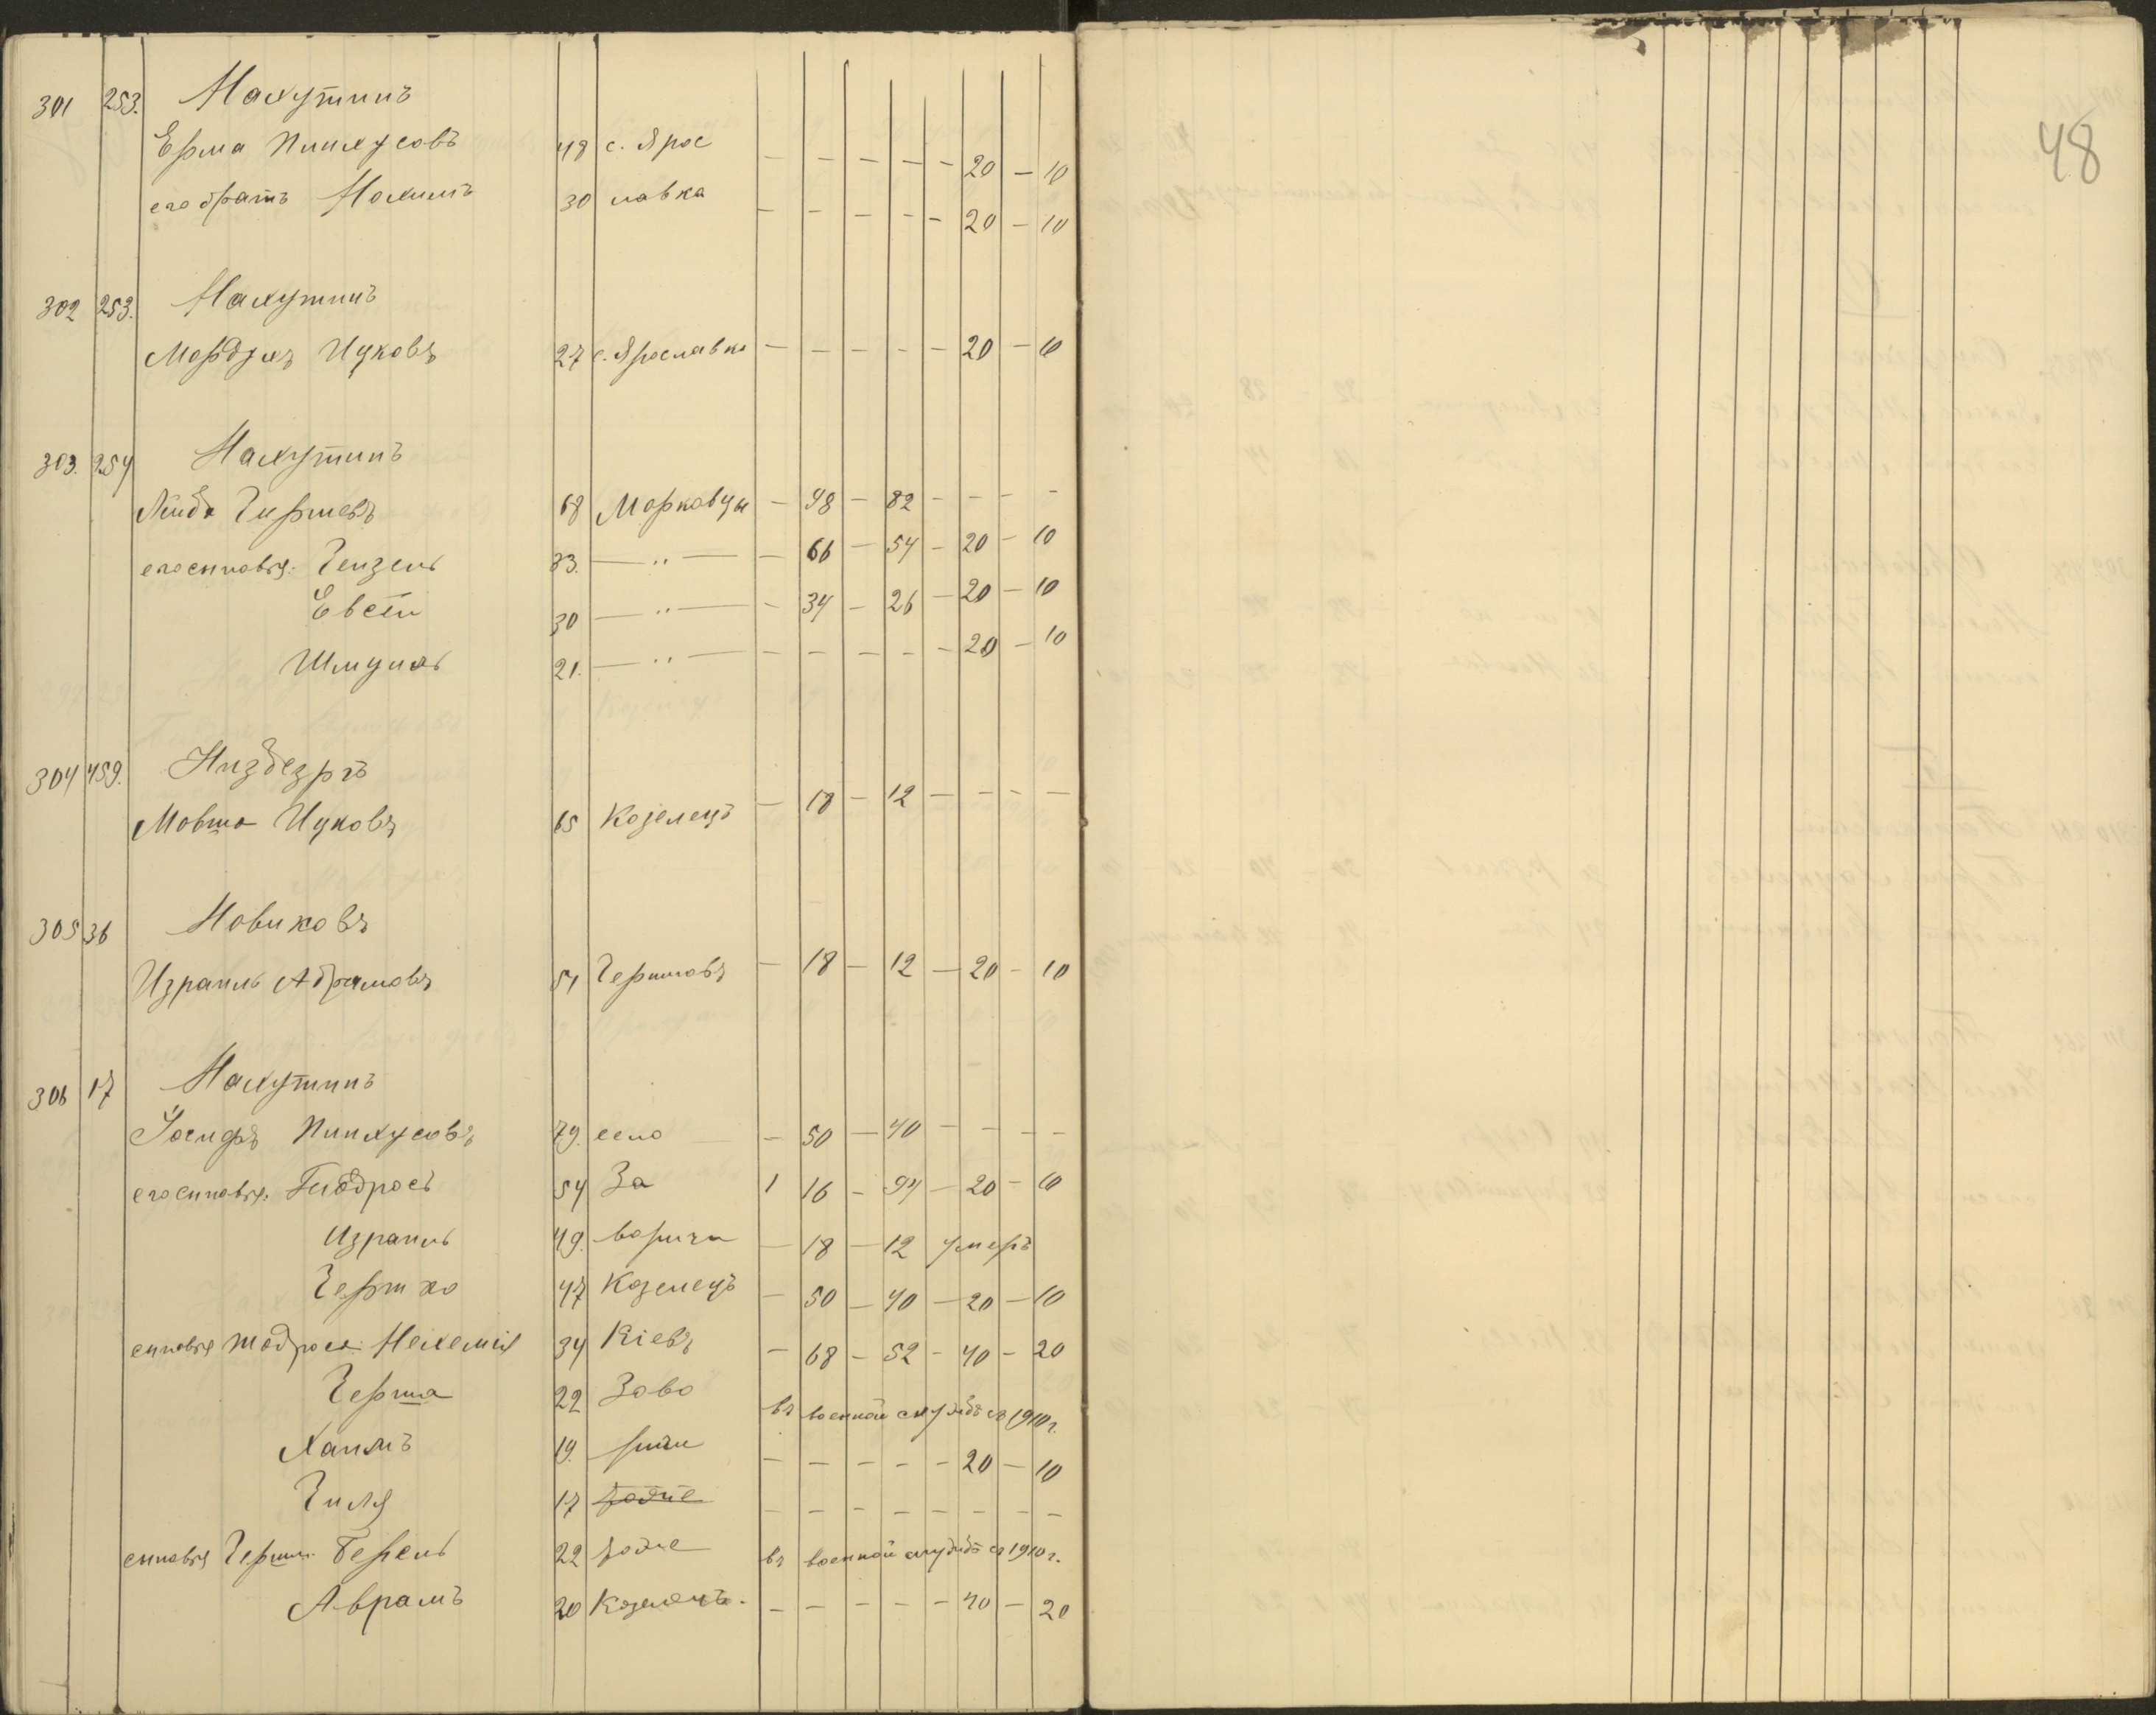 48
301 253. Нахутинъ
Ерма Пинхусовъ 48 с. Ярос — — — — — 20 — 10
его братъ Нохимъ 30 лавка — — — — — 20 — 10
302 253. Нахутинъ
Мордухъ Ицковъ 27 с. Ярославка — — — — — 20 — 10
303. 254 Нахутинъ
Лейба Гиршевъ 68 Морковцы — 48 — 82 — — — —
его сыновья: Гензель 33. — " — — 66 — 54 — 20 — 10
Евсей 30 — " — — 34 — 26 — 20 — 10
Шмуиль 21. — " — — — — — — 20 — 10
304 459. Низбезргъ
Мовша Ицковъ 65 Козелецъ — 18 — 12 — — — —
305 36 Новиковъ
Израиль Абрамовъ 51 Черниговъ — 18 — 12 — 20 — 10
306 17 Нахутинъ
Іосифъ Пинхусовъ 79. село — 50 — 40 — — — —
его сыновья: Тодросъ 54 За 1 16 — 94 — 20 — 10
Израиль 49. воричи — 18 — 12 умеръ
Гершко 47 Козелецъ — 50 — 40 — 20 — 10
сыновья Тодроса: Нехемія 34 Кіевъ — 68 — 52 — 40 — 20
Герша 22 Заво въ военной службѣ съ 1910 г.
Хаимъ 19. ричи — — — — — 20 — 10
Гиля 17 тоже — — — — — — — —
сыновья Герши: Берель 22 тоже въ военной службѣ съ 1910 г.
Аврамъ 20 Козелецъ. — — — — — 40 — 20